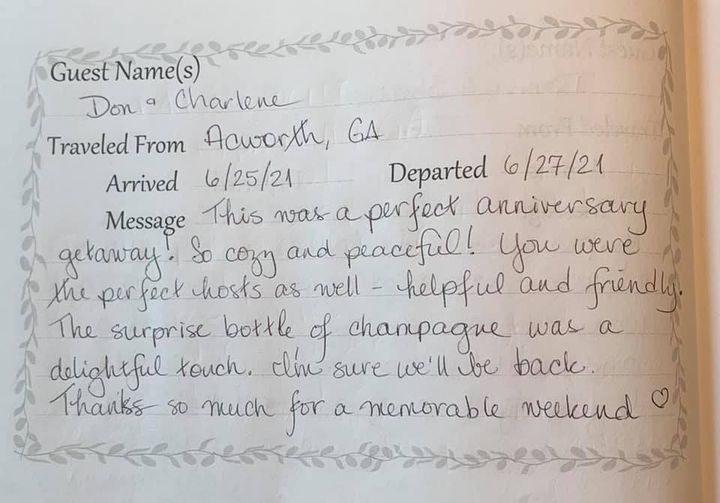 Guest Name(s)
Don & Charlene
Traveled From Acworth, GA
Arrived 6/25/21 Departed 6/27/21
Message This was a perfect anniversary
getaway! So cozy and peaceful! You were
the perfect hosts as well - helpful and friendly.
The surprise bottle of champagne was a
delightful touch. I'm sure we'll be back.
Thanks so much for a memorable weekend ♡